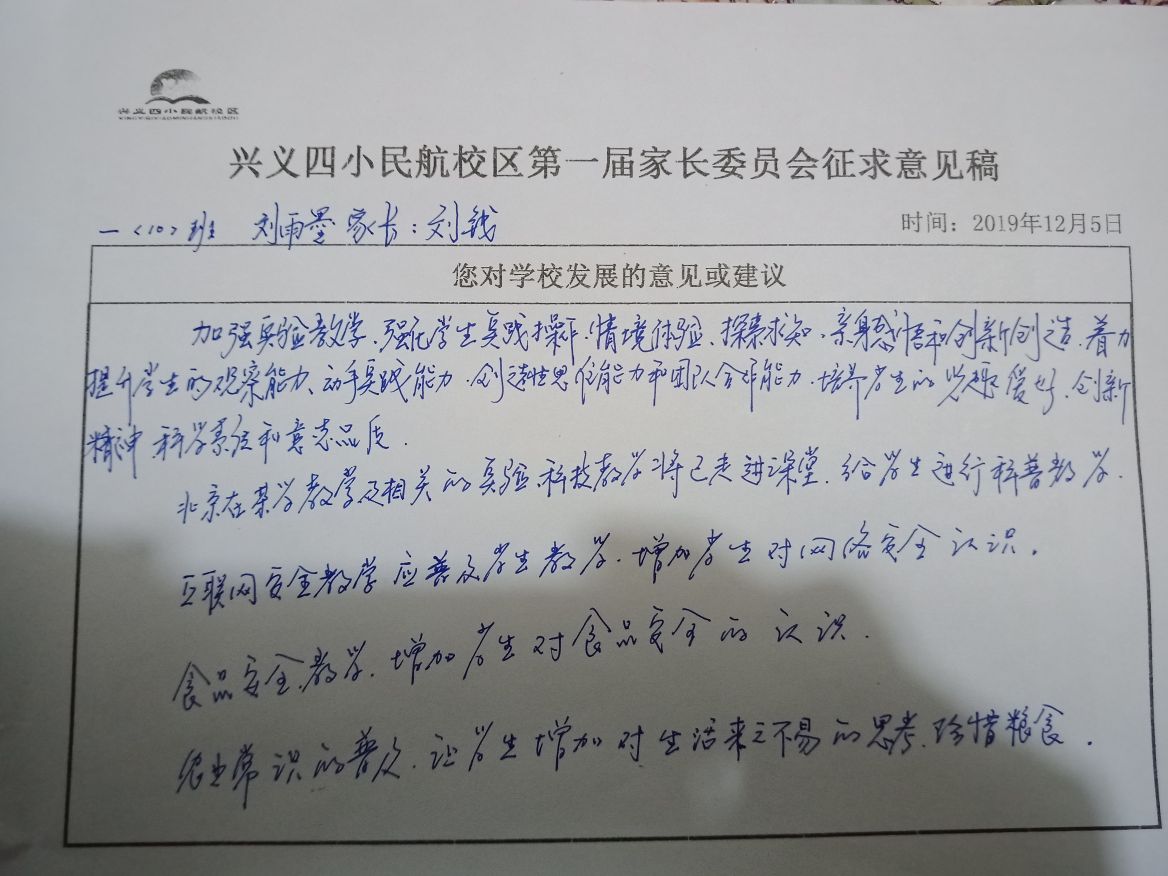 兴义四小民航校区
兴义四小民航校区第一届家长委员会征求意见稿
一〈10〉班 刘雨墨家长：刘钱
时间：2019年12月5日
您对学校发展的意见或建议
加强实验教学、强化学生实践操作、情境体验、探索求知、亲身感悟和创新创造、着力
提升学生的观察能力、动手实践能力、创造性思维能力和团队合作能力、培养学生的兴趣爱好、创新
精神、科学素质和意志品质.
北京在某学教学及相关的实验、科技教学将已走进课堂、给学生进行科普教学.
互联网安全教学应普及学生教学、增加学生对网络安全认识.
食品安全教学、增加学生对食品安全的认识.
农业常识的普及、让学生增加对生活来之不易的思考、珍惜粮食.